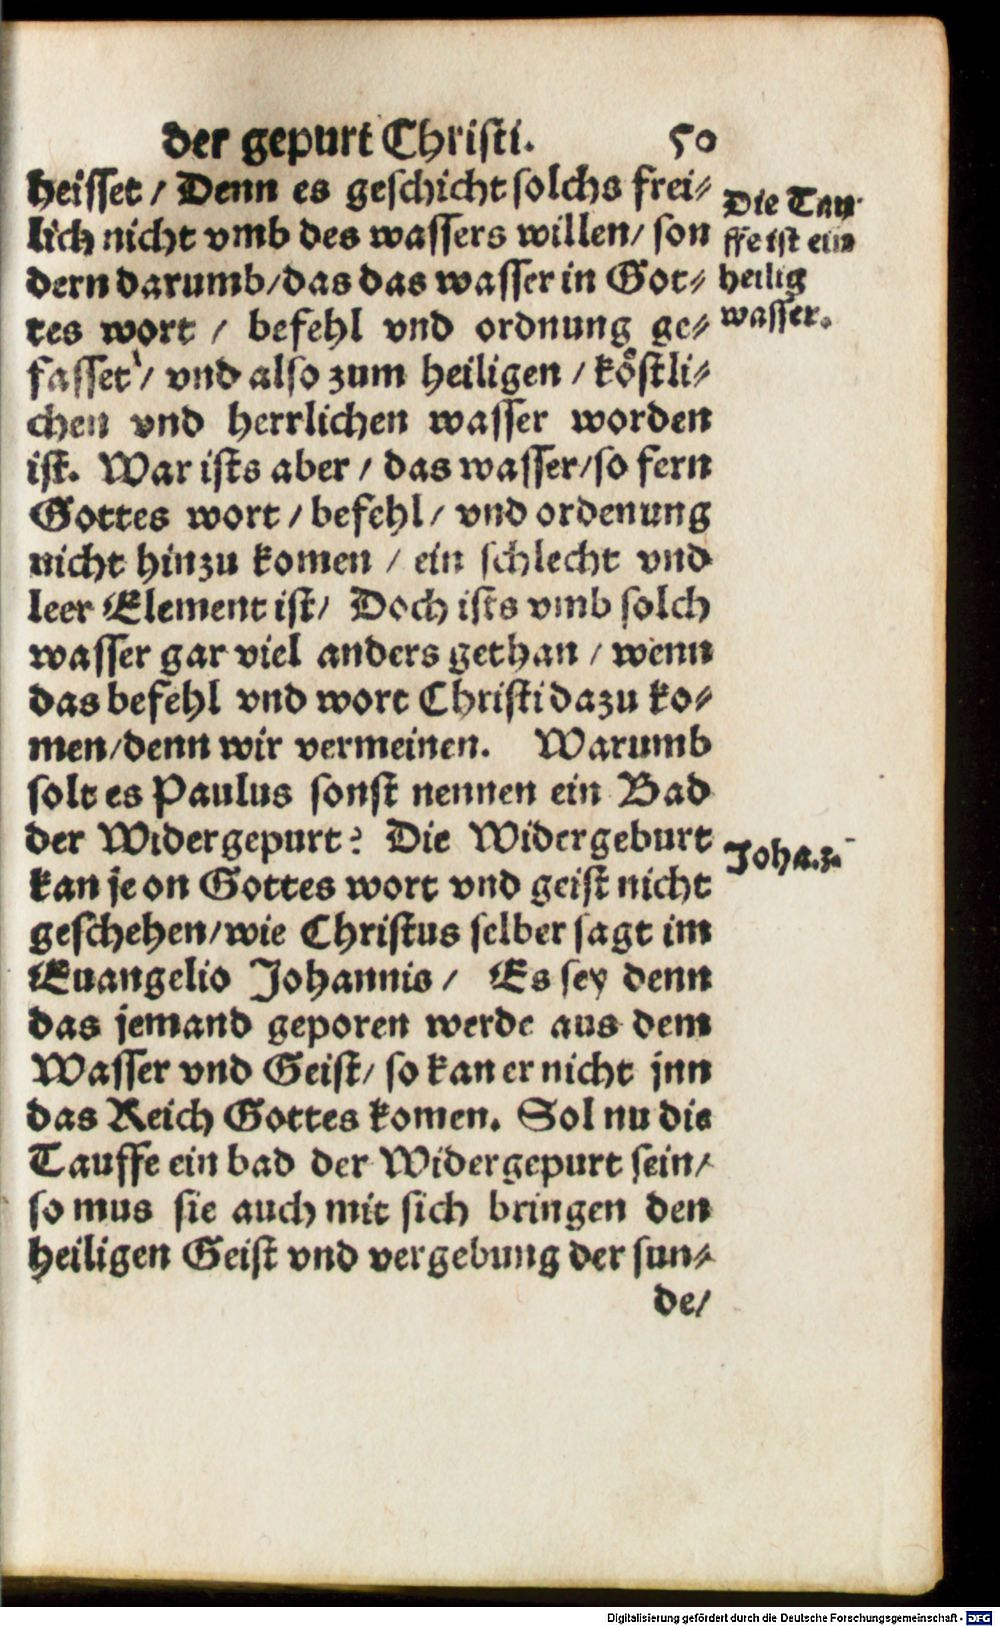 der gepurt Christi. 50
heisset / Denn es geschicht solchs frei⸗
lich nicht vmb des wassers willen / son
dern darumb / das das wasser in Got⸗
tes wort / befehl vnd ordnung ge⸗
fasset / vnd also zum heiligen / köstli⸗
chen vnd herrlichen wasser worden
ist. War ists aber / das wasser / so fern
Gottes wort / befehl / vnd ordenung
nicht hinzu komen / ein schlecht vnd
leer Element ist / Doch ists vmb solch
wasser gar viel anders gethan / wenn
das befehl vnd wort Christi dazu ko⸗
men / denn wir vermeinen. Warumb
solt es Paulus sonst nennen ein Bad
der Widergepurt? Die Widergeburt
kan je on Gottes wort vnd geist nicht
geschehen / wie Christus selber sagt im
Euangelio Johannis / Es sey denn
das jemand geporen werde aus dem
Wasser vnd Geist / so kan er nicht jnn
das Reich Gottes komen. Sol nu die
Tauffe ein bad der Widergepurt sein /
so mus sie auch mit sich bringen den
heiligen Geist vnd vergebung der sun⸗
de /
Die Tau
ffe ist ein
heilig
wasser.
Joha. 3.
Digitalisierung gefördert durch die Deutsche Forschungsgemeinschaft - DFG